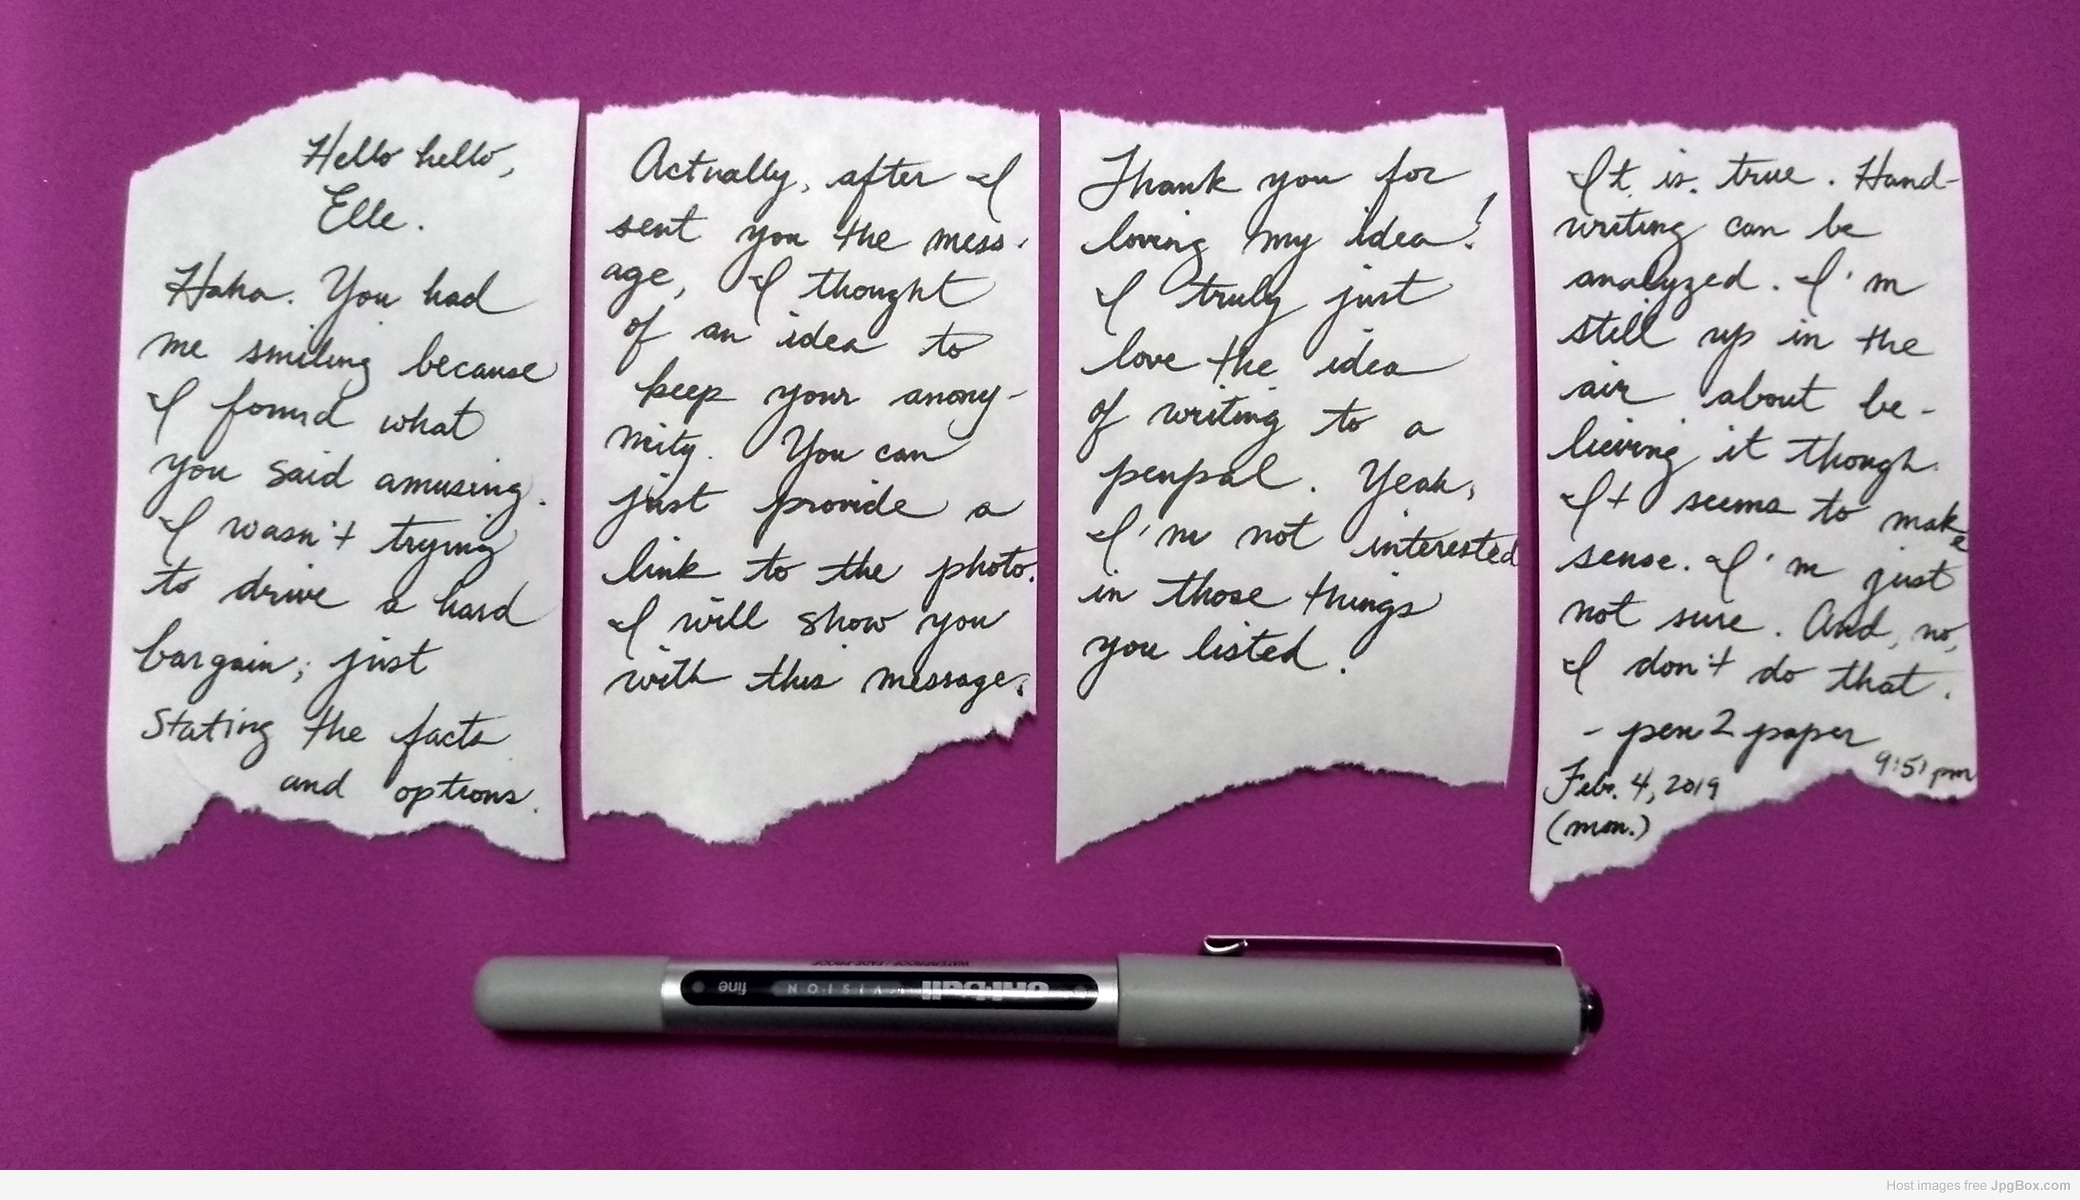 Hello hello,
Elle.
Haha. You had
me smiling because
I found what
you said amusing.
I wasn't trying
to drive a hard
bargain; just
stating the facts
and options.
Actually, after I
sent you the mess-
age, I thought
of an idea to
keep your anony-
mity. You can
just provide a
link to the photo.
I will show you
with this message.
Thank you for
loving my idea!
I truly just
love the idea
of writing to a
penpal. Yeah,
I'm not interested
in those things
you listed.
It is true. Hand-
writing can be
analyzed. I'm
still up in the
air about be-
lieving it though.
It seems to make
sense. I'm just
not sure. And, no,
I don't do that.
- pen2paper
9:51 pm
Feb. 4, 2019
(mon.)
WATERPROOF / FADE-PROOF
uni-ball VISION fine
Host images free JpgBox.com